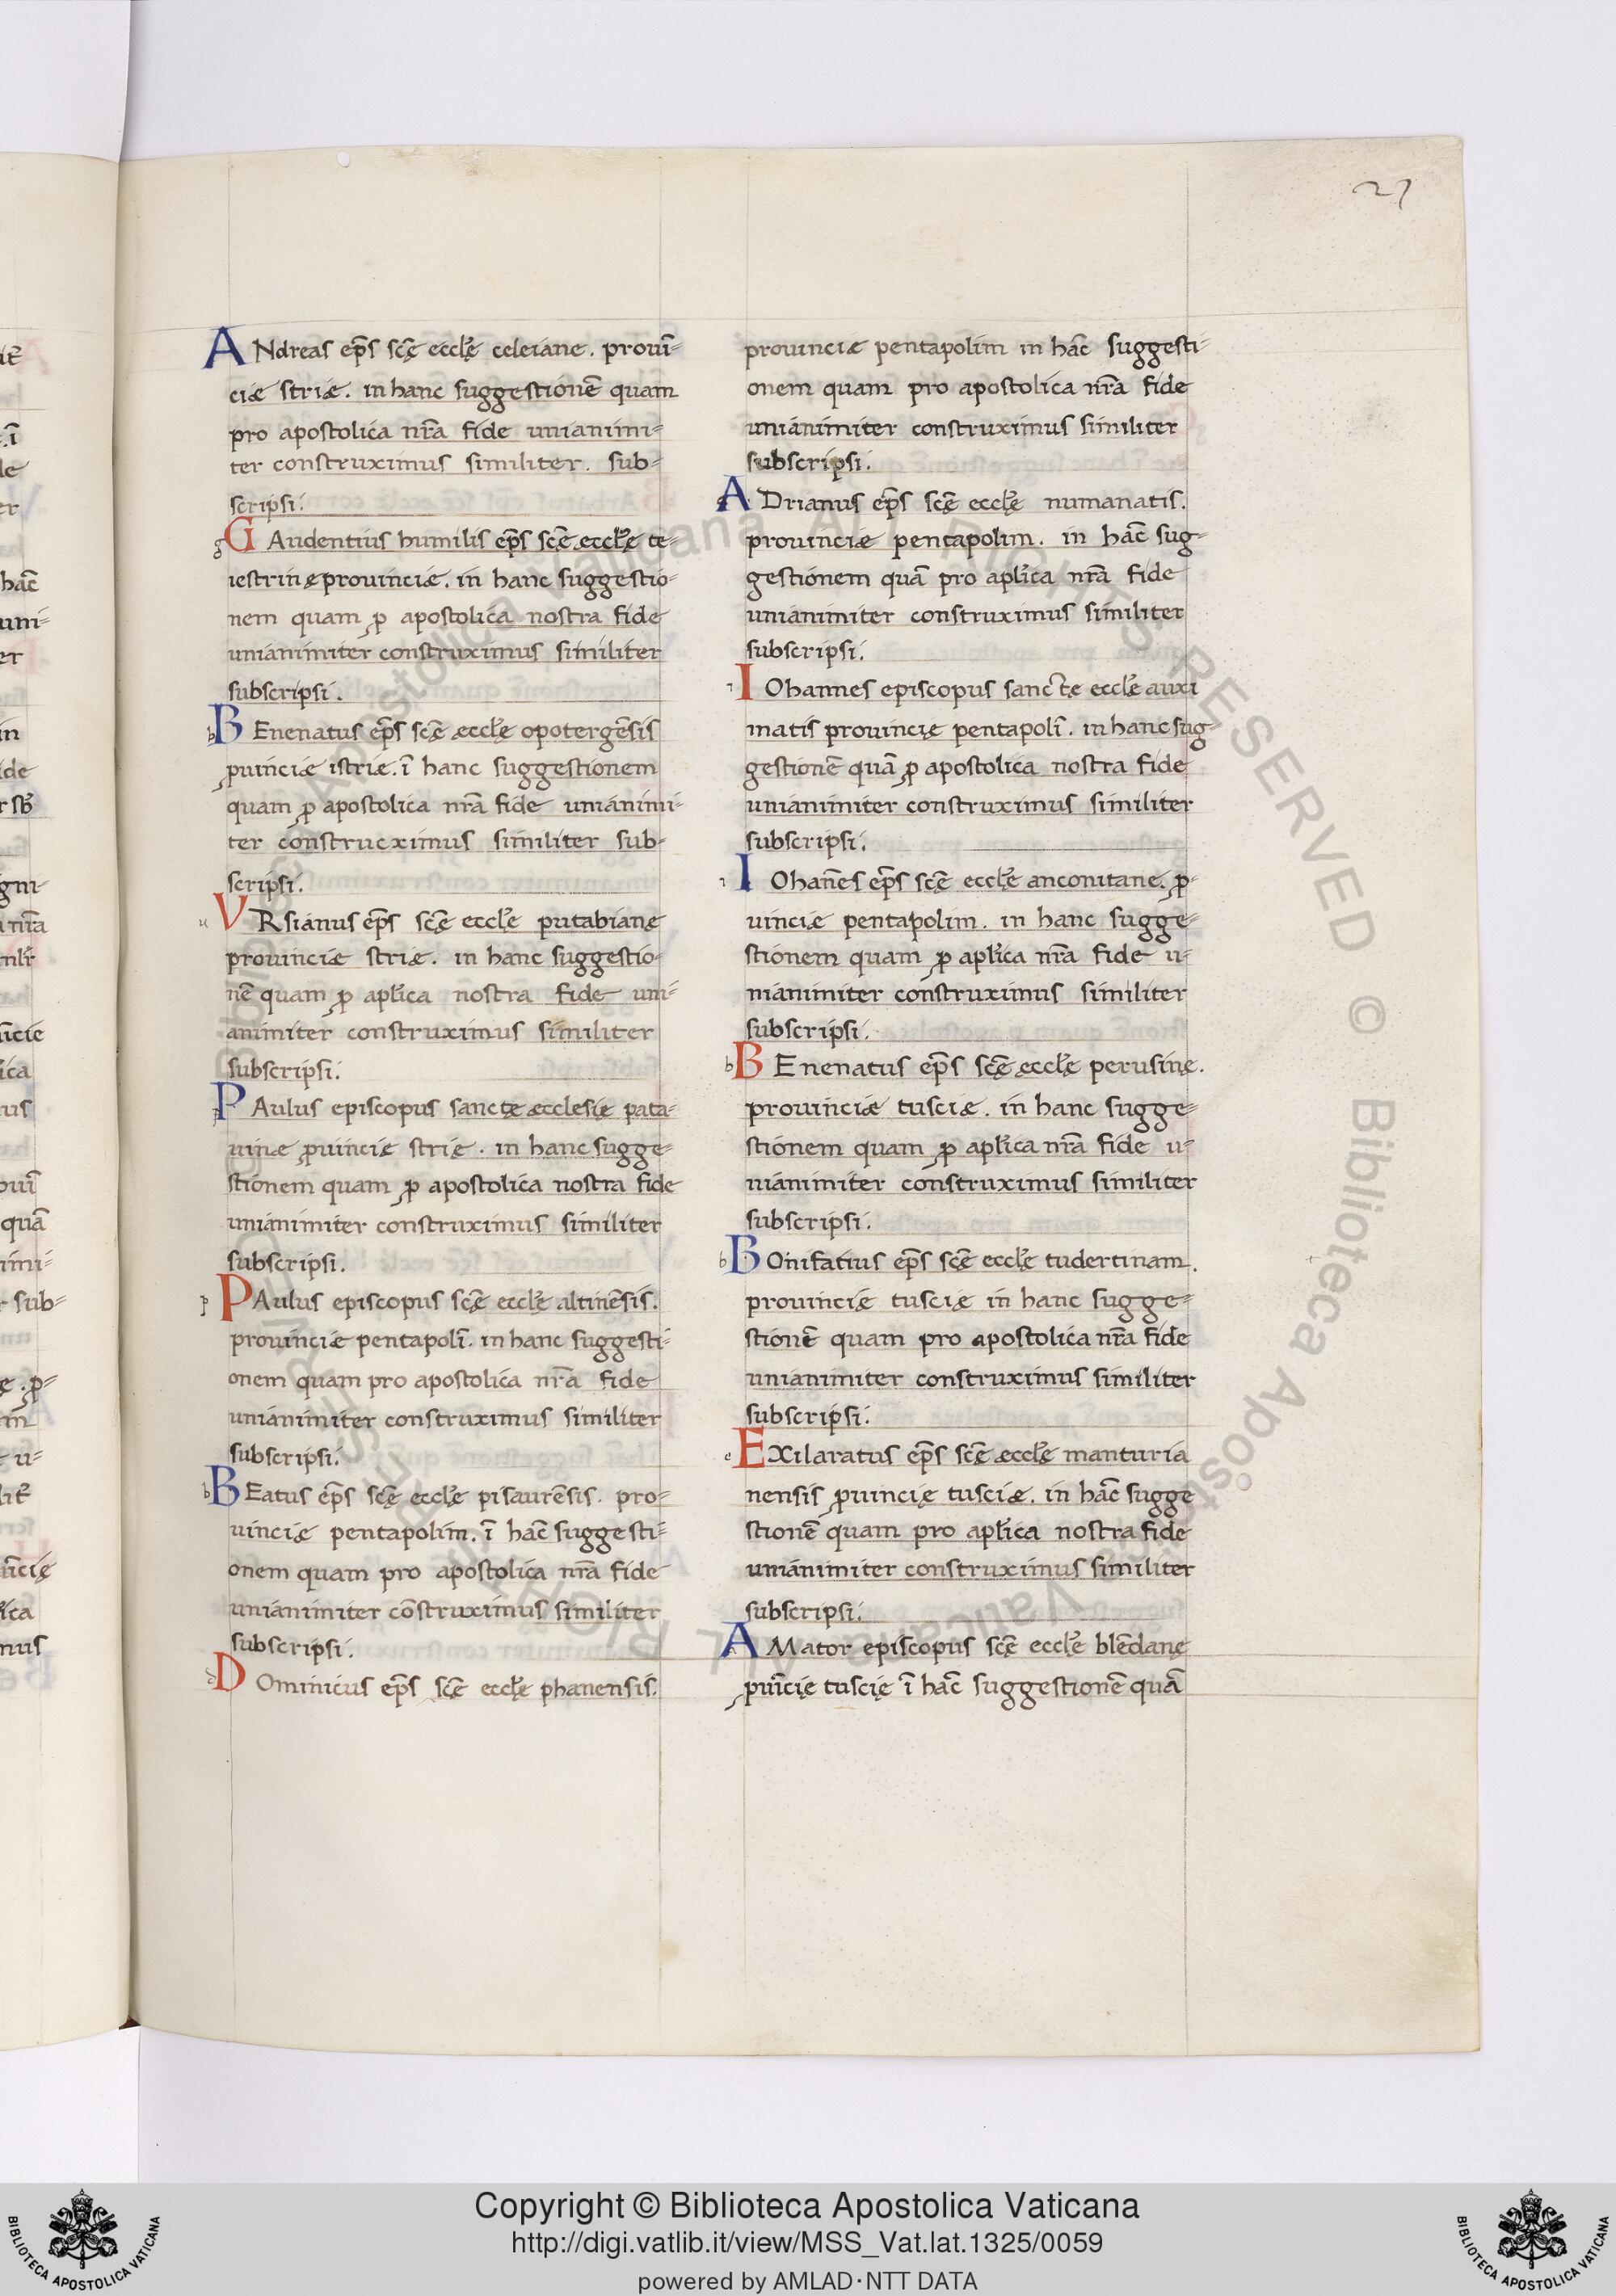 27
ANdreas ep̅s sc̅ę eccl̅ę celeiane. proui̅=
ciæ striæ. in hanc suggestione̅ quam
pro apostolica nr̅a fide unianimi=
ter construximus similiter. sub=
scripsi.
g GAudentius humilis ep̅s sc̅ę æccl̅ę te=
iestrinę prouinciæ. in hanc suggestio=
nem quam ꝓ apostolica nostra fide
unianimiter construximus similiter
subscripsi.
b BEnenatus ep̅s sc̅ę æccl̅ę opoterge̅sis
ꝓuinciæ istrie. i̅ hanc suggestionem
quam ꝓ apostolica nr̅a fide unianimi=
ter construcximus similiter sub=
scripsi.
u VRsianus ep̅s sc̅ę eccl̅ę putabianę
prouinciæ striæ. in hanc suggestio=
ne̅ quam ꝓ apl̅ica nostra fide uni=
animiter construximus similiter
subscripsi.
p PAulus episcopus sanctę æcclesię pata=
uinæ ꝓuincię strię. in hanc sugge=
stionem quam ꝓ apostolica nostra fide
unianimiter construximus similiter
subscripsi.
p PAulus episcopus sc̅ę eccl̅ę altine̅sis.
prouinciæ pentapoli̅. in hanc suggesti=
onem quam pro apostolica nr̅a fide
unianimiter construximus similiter
subscripsi.
b BEatus ep̅s sc̅ę eccl̅ę pisaure̅sis. pro=
uinciæ pentapolim. i̅ ha̅c suggesti=
onem quam pro apostolica nr̅a fide
unianimiter co̅struximus similiter
subscripsi.
d DOminicus ep̅s sc̅ę eccl̅ę phanensis.
prouinciæ pentapolim in ha̅c suggesti=
onem quam pro apostolica nr̅a fide
unianimiter construximus similiter
subscripsi.
a ADrianus ep̅s sc̅ę eccl̅ę numanatis.
prouinciæ pentapolim. in ha̅c sug=
gestionem qua̅ pro apl̅ica nr̅a fide
unianimiter construximus similiter
subscripsi.
i IOhannes episcopus sanctę eccl̅ę auxi
matis prouincię pentapoli̅. in hanc sug=
gestione̅ qua̅ ꝓ apostolica nostra fide
unianimiter construximus similiter
subscripsi.
i IOhan̅es ep̅s sc̅ę eccl̅ę anconitane. ꝓ=
uinciæ pentapolim. in hanc sugge=
stionem quam ꝓ apl̅ica nr̅a fide u=
nianimiter construximus similiter
subscripsi.
b BEnenatus ep̅s sc̅ę æccl̅ę perusinę.
prouinciæ tusciæ. in hanc sugge=
stionem quam ꝓ apl̅ica nr̅a fide u=
nianimiter construximus similiter
subscripsi.
b BOnifatius ep̅s sc̅ę eccl̅ę tudertinam.
prouincię tuscię in hanc sugge=
stione̅ quam pro apostolica nr̅a fide
unianimiter construximus similiter
subscripsi.
e EXilaratus ep̅s sc̅ę æccl̅ę manturia
nensis ꝓuincię tusciæ. in ha̅c sugge
stione̅ quam pro apl̅ica nostra fide
unianimiter construximus similiter
subscripsi.
a AMator episcopus sc̅ę eccl̅ę ble̅danę
ꝓui̅cię tuscię i̅ ha̅c suggestione̅ qua̅
Copyright © Biblioteca Apostolica Vaticana
http://digi.vatlib.it/view/MSS_Vat.lat.1325/0059
powered by AMLAD·NTT DATA